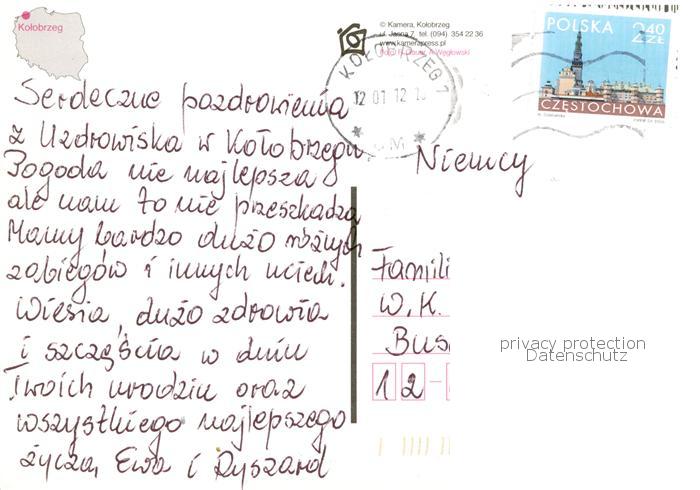 Kołobrzeg
© Kamera, Kołobrzeg
ul. Jasna 7, tel. (094) 354 22 36
www.kamerapress.pl
KOŁOBRZEG 1
12 01 12
M
POLSKA 2,40 ZŁ
CZĘSTOCHOWA
Serdeczne pozdrowienia
z Uzdrowiska w Kołobrzegu.
Pogoda nie najlepsza
ale nam to nie przeszkadza
Mamy bardzo dużo różnych
zabiegów i innych uciech.
Wiesia, dużo zdrowia
i szczęścia w dniu
Twoich urodzin oraz
wszystkiego najlepszego
życzą, Ewa i Ryszard
Niemcy
Famili
W. K.
Bus
12-
privacy protection
Datenschutz